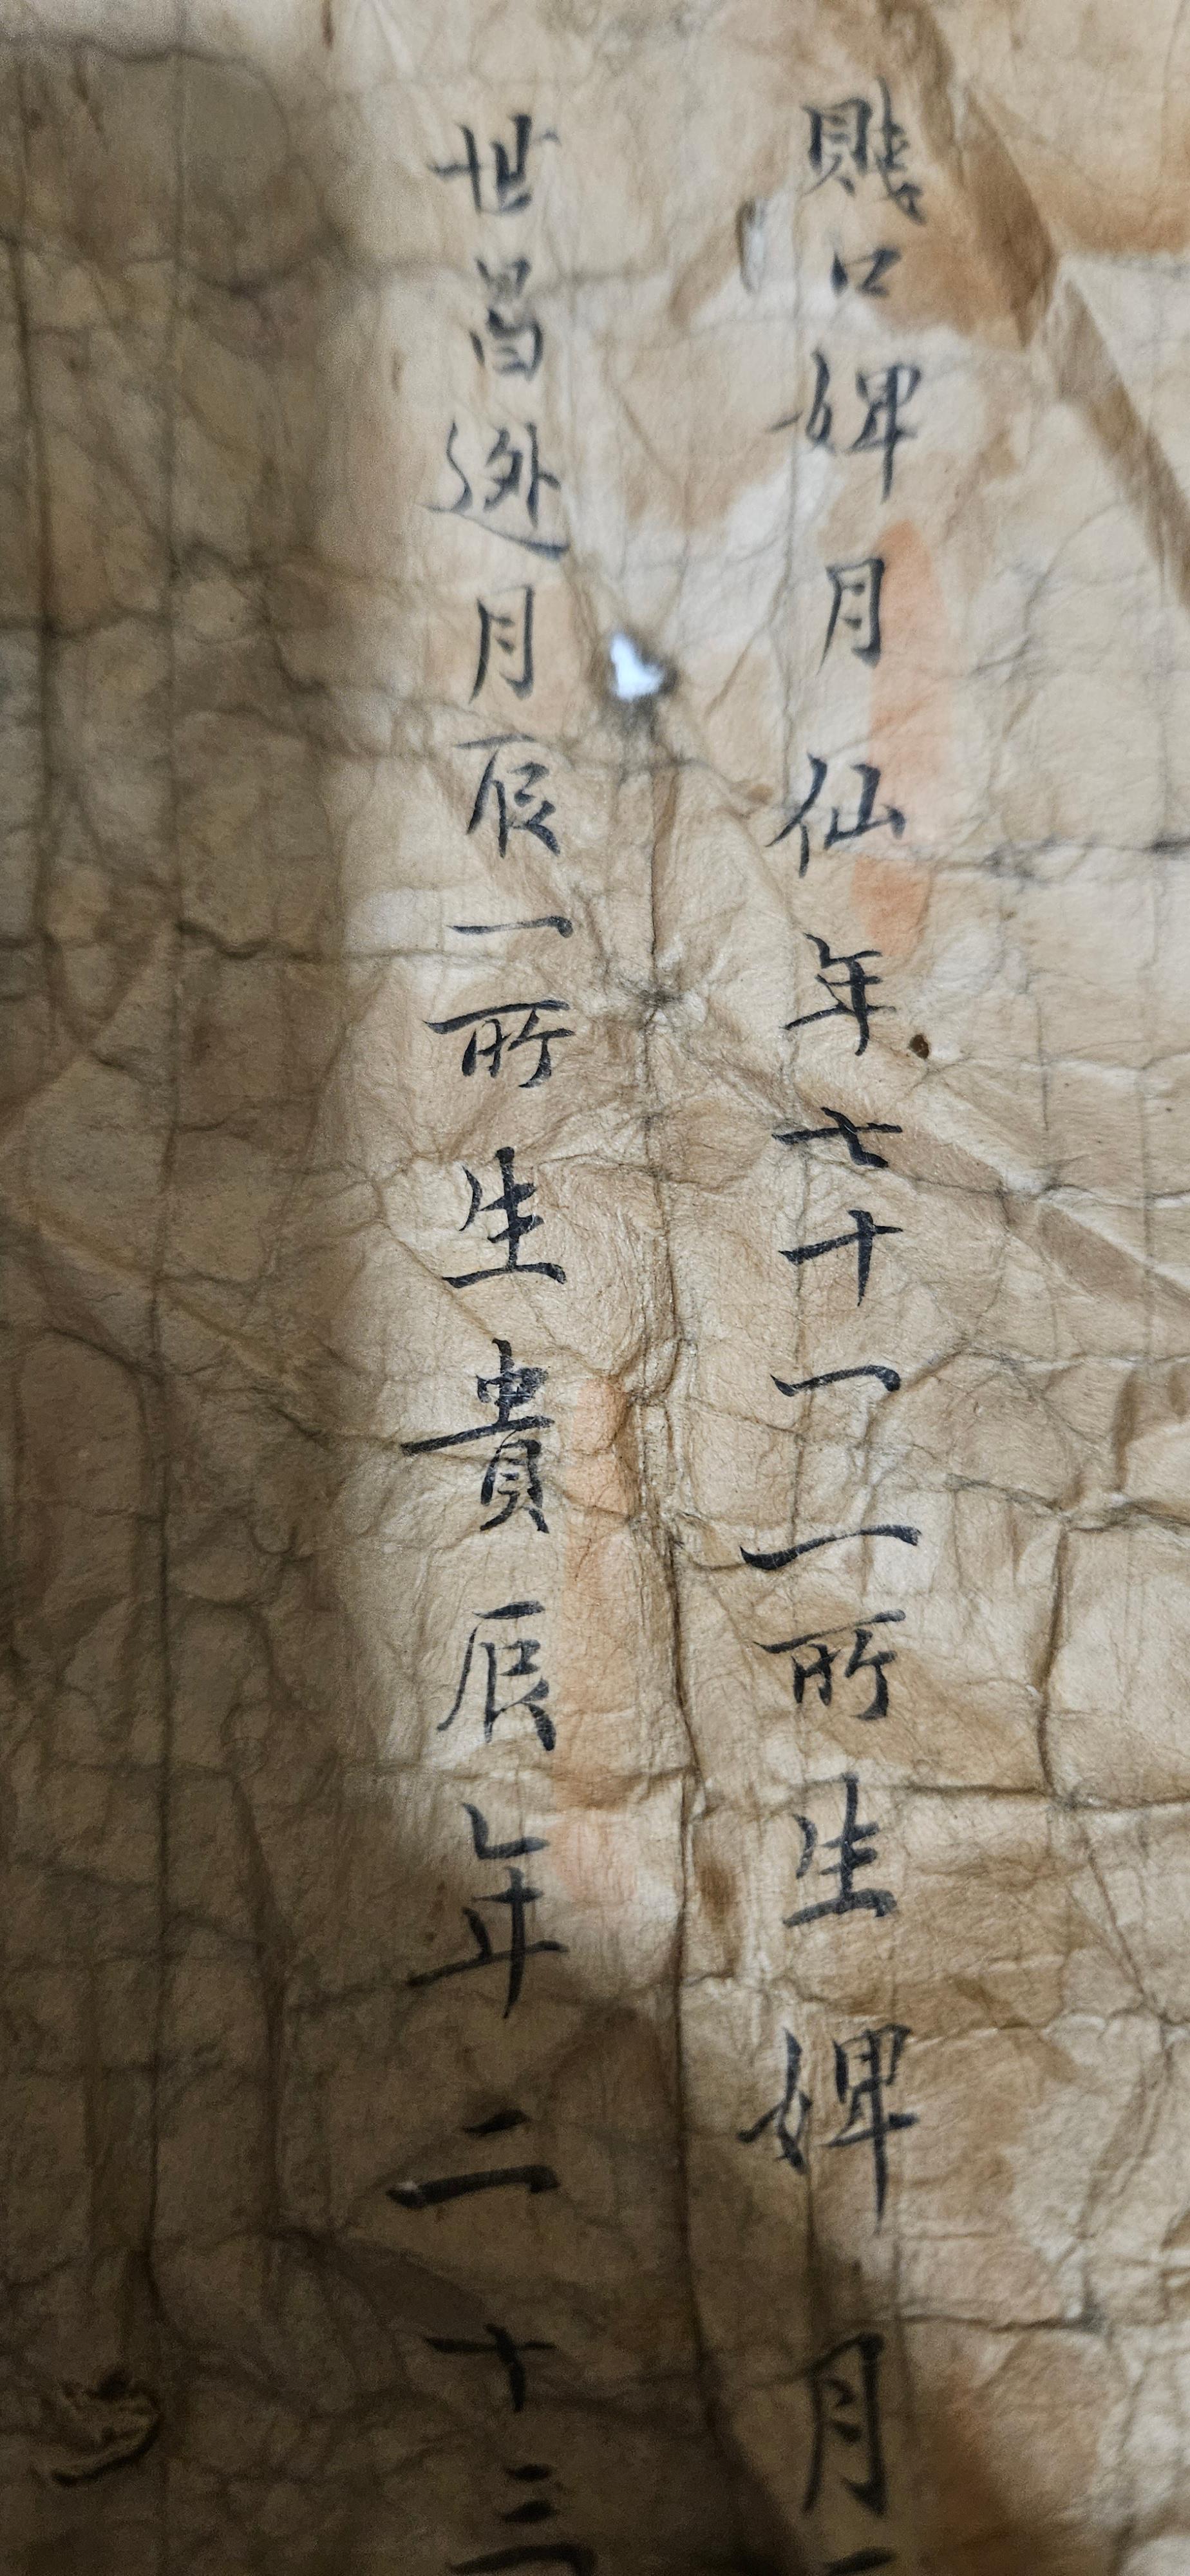 賤口婢月仙年七十一一所生婢月
世昌迯月辰一所生貴辰年二十三